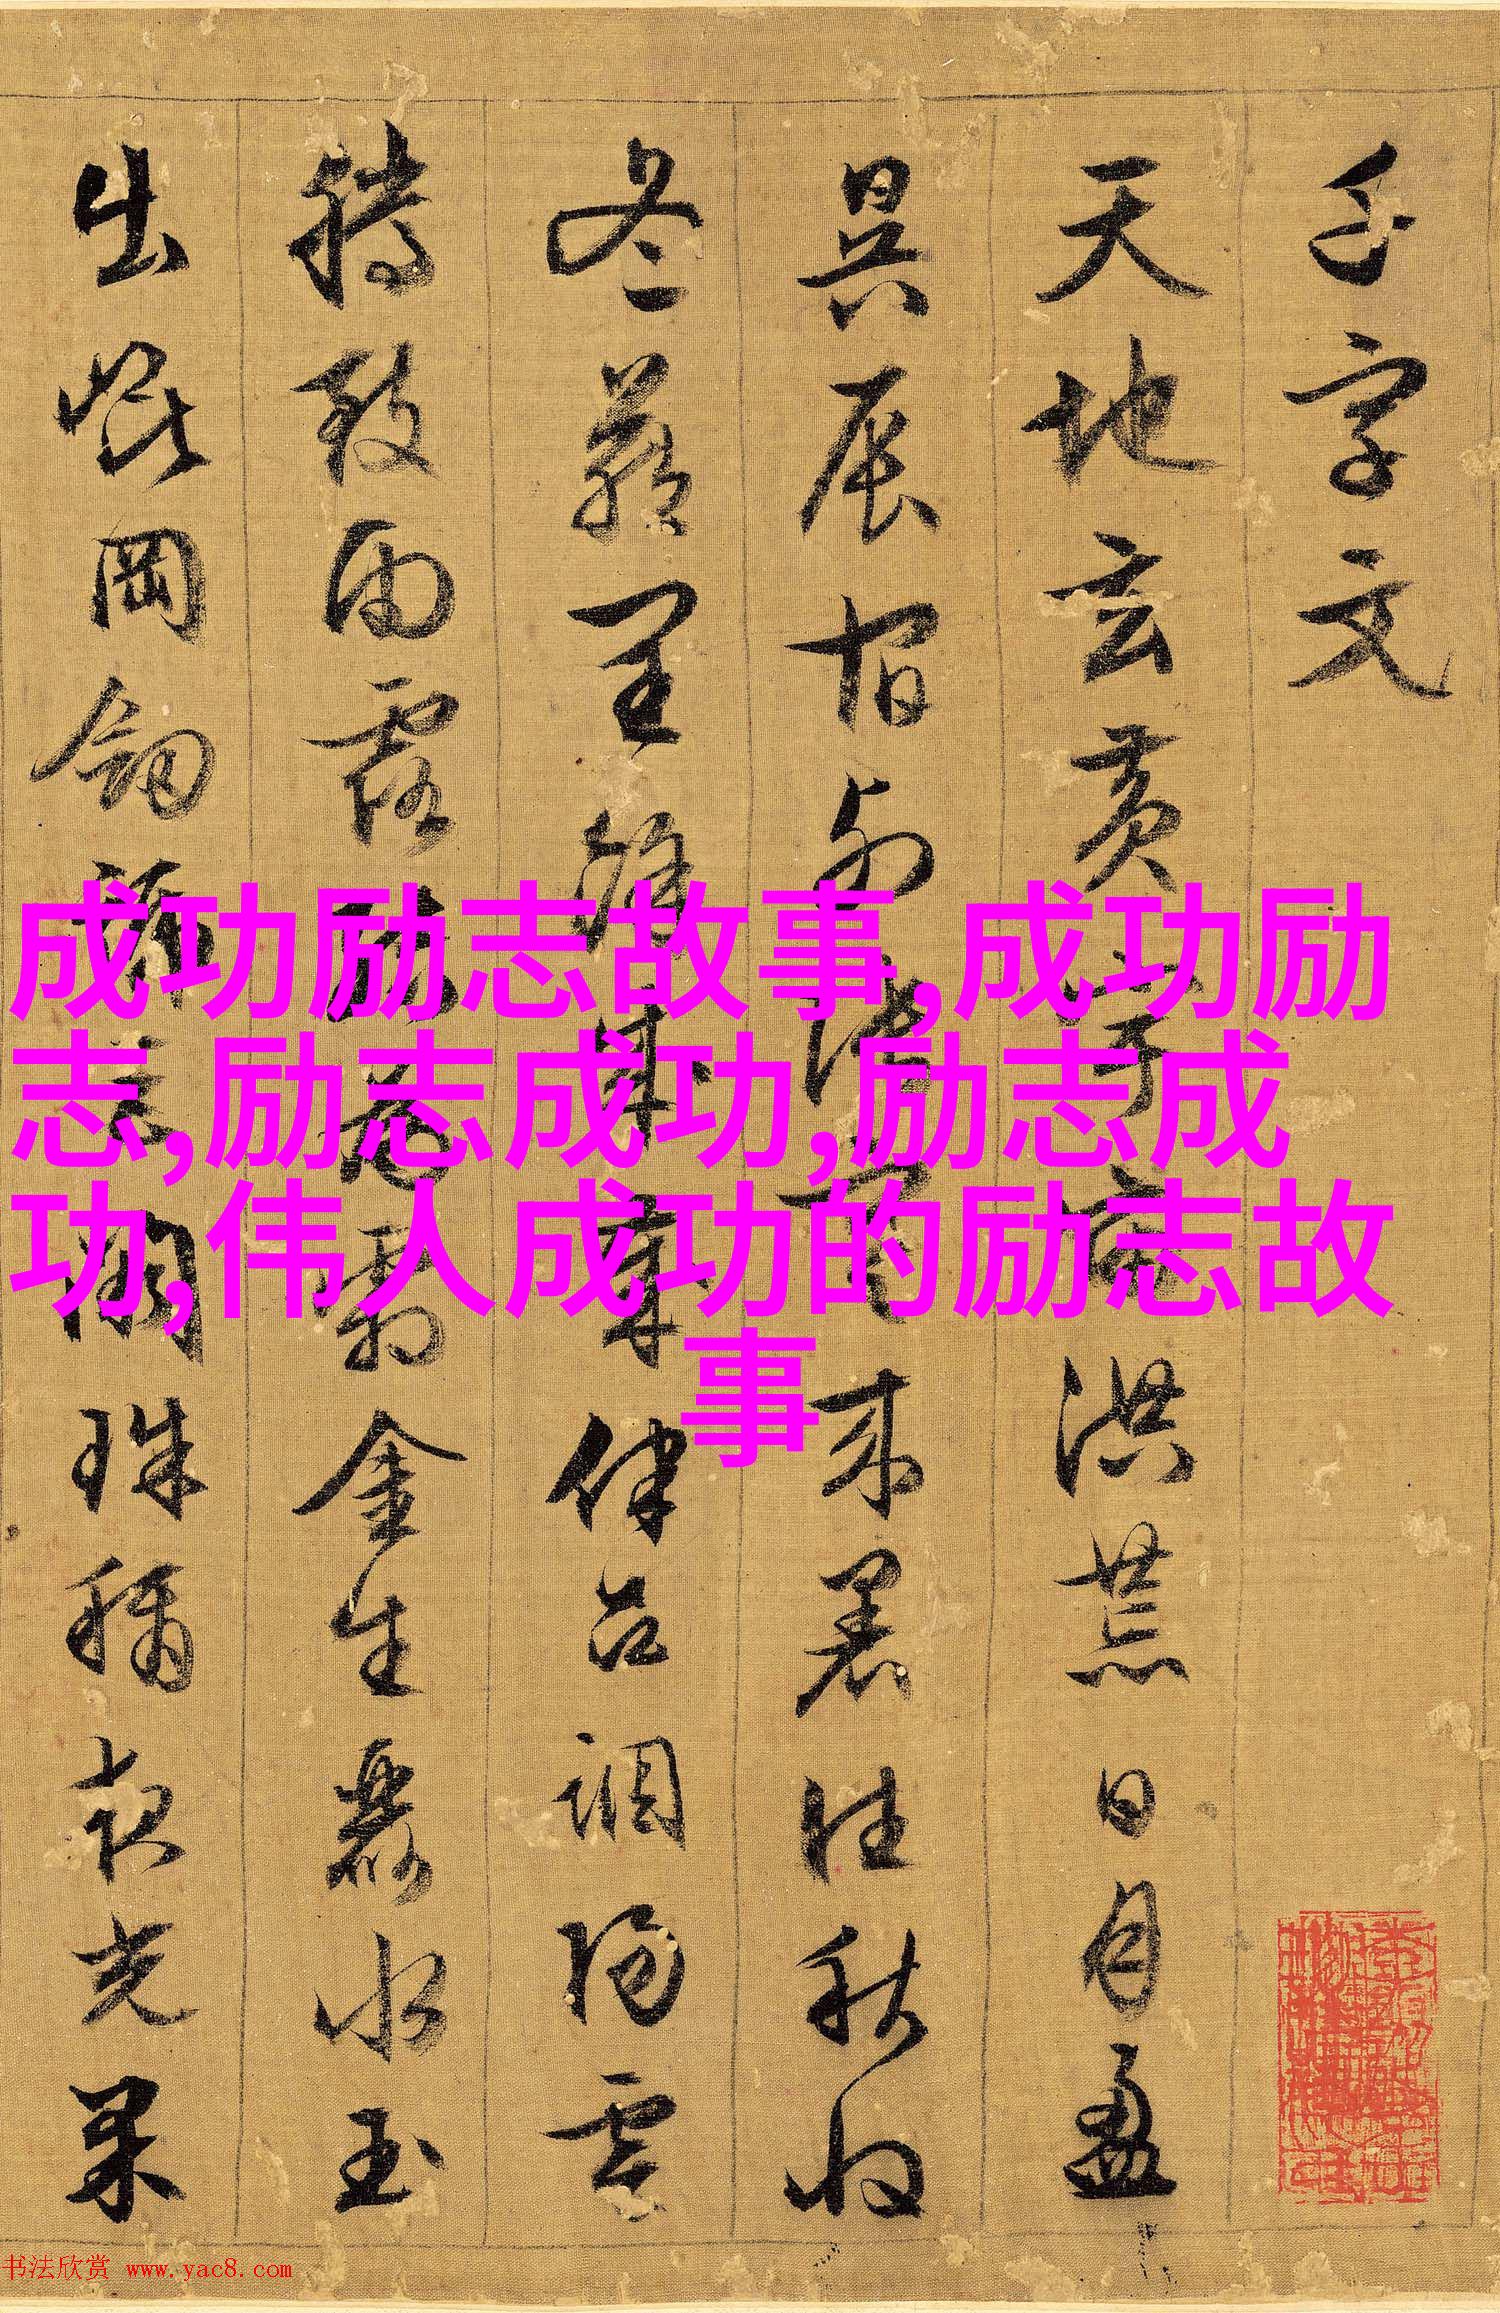 千字文
天地玄黄宇宙洪荒日月盈
昃辰宿列張寒来暑往秋收
冬藏閏餘成歲律呂調陽雲
騰致雨露結為霜金生麗水玉
出崐岡劍號巨闕珠稱夜光果
成功励志故事,成功励
志,励志成功,励志成
功,伟人成功的励志故
事
书法欣赏 www.yac8.com